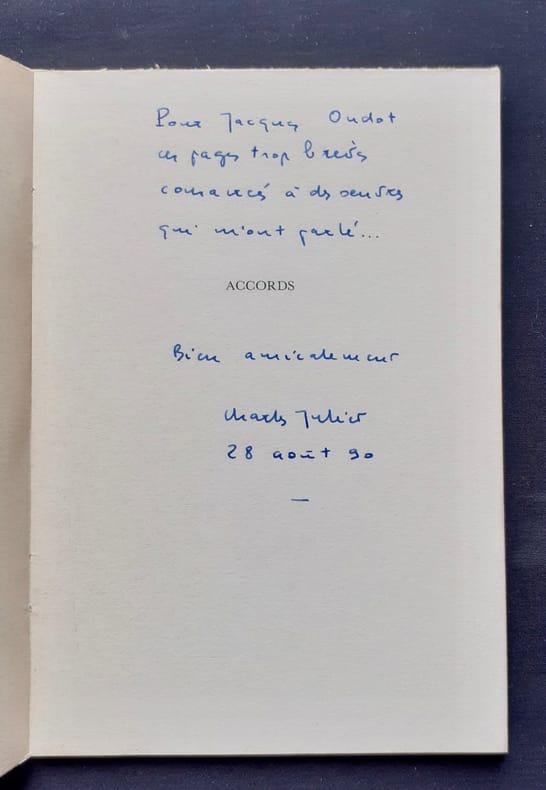 Pour Jacques Oudot
ces pages trop brèves
consacrées à des œuvres
qui m'ont parlé...
ACCORDS
Bien amicalement
Charles Juliet
28 août 90